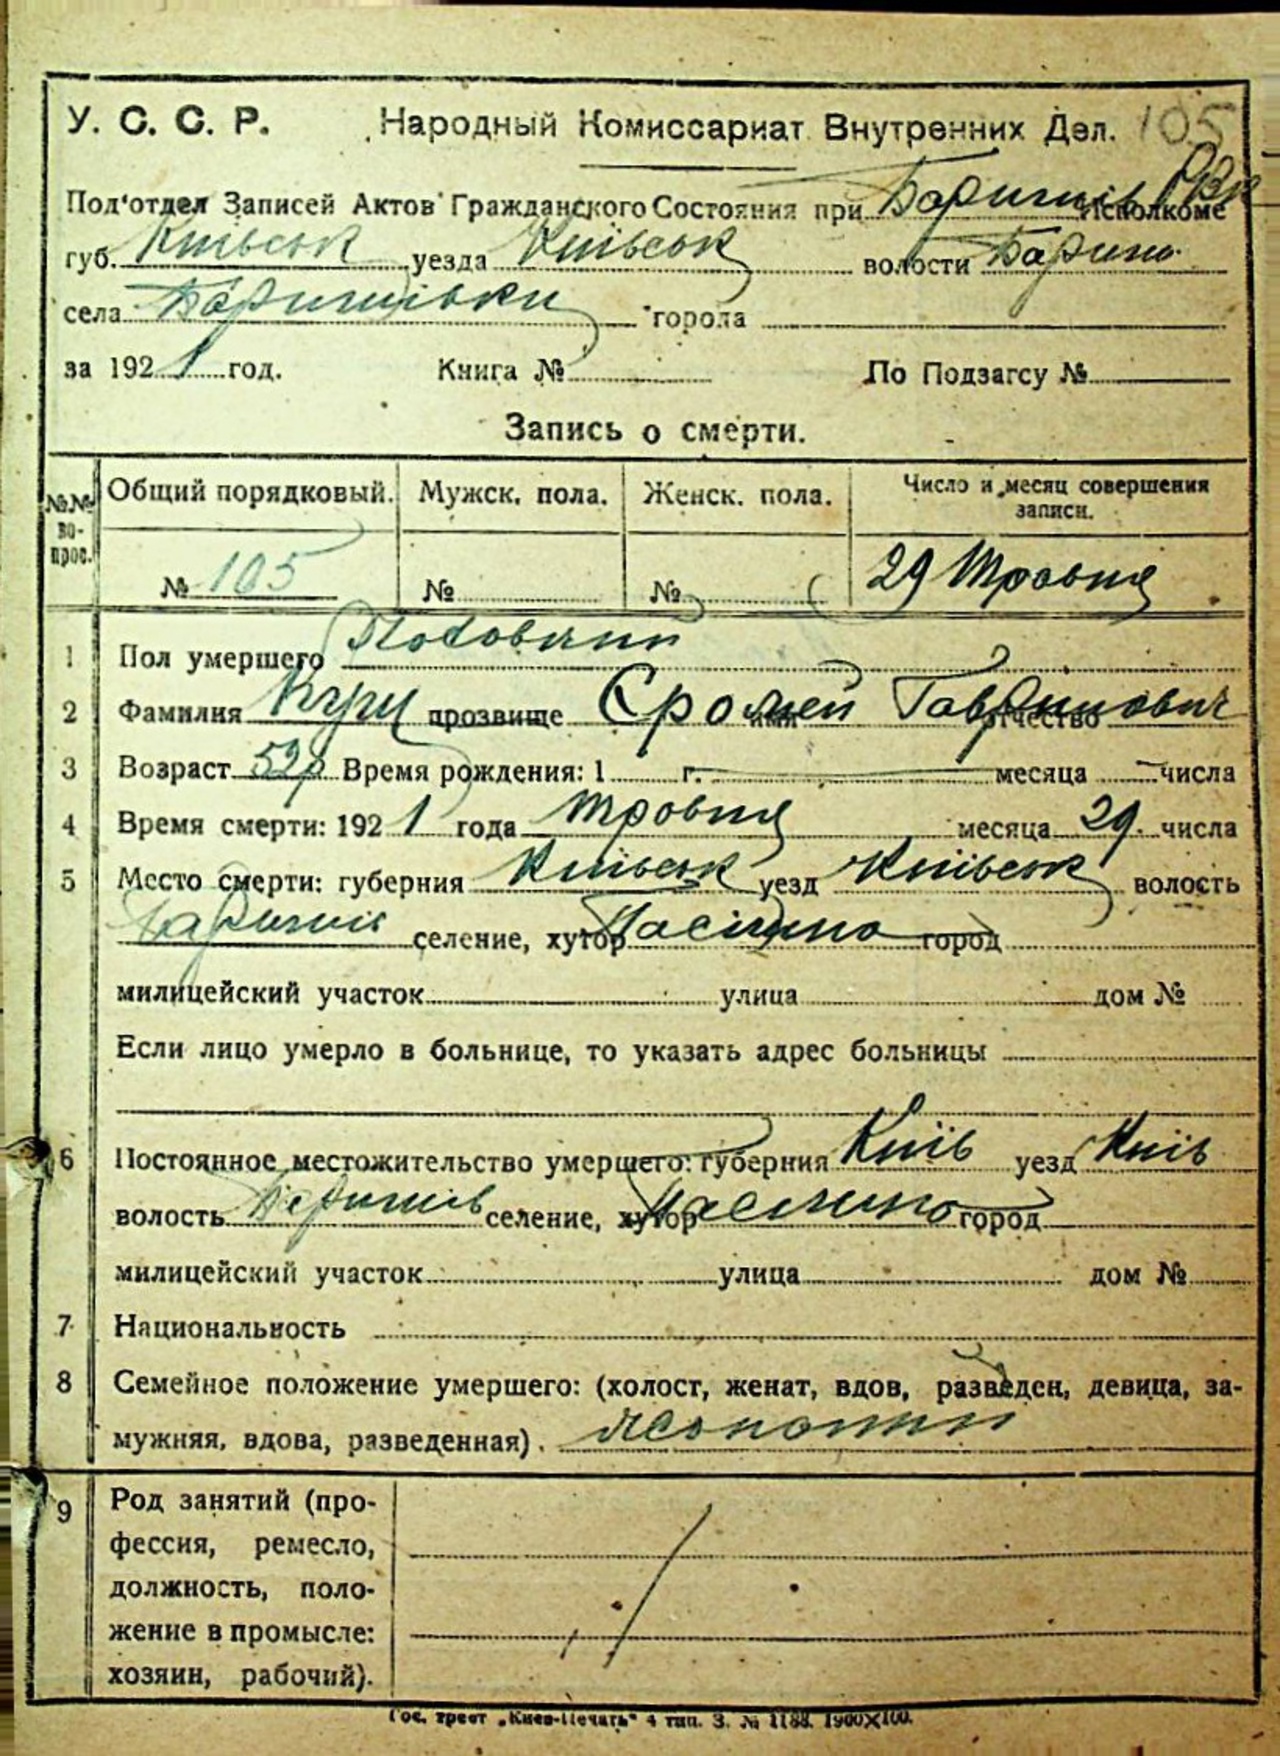 У. С. С. Р. Народный Комиссариат Внутренних Дел. 105
Под'отдел Записей Актов Гражданского Состояния при Баришів РВК Исполкоме
губ. Київськ уезда Київськ волости Бариш.
села Баришівки города
за 1921 год. Книга № По Подзагсу №
Запись о смерти.
№№ вопрос. Общий порядковый. Мужск. пола. Женск. пола. Число и месяц совершения записи.
№ 105 № № 29 Травня
1 Пол умершего
2 Фамилия Куц прозвище имя отчество
3 Возраст 52р Время рождения: 1 г. месяца числа
4 Время смерти: 1921 года Травня месяца 29. числа
5 Место смерти: губерния Київськ уезд Київськ волость
Баришів селение, хутор Пасічна город
милицейский участок улица дом №
Если лицо умерло в больнице, то указать адрес больницы
6 Постоянное местожительство умершего: губерния Київ уезд Київ
волость Баришів селение, хутор Пасічна город
милицейский участок улица дом №
7 Национальность
8 Семейное положение умершего: (холост, женат, вдов, разведен, девица, за-
мужняя, вдова, разведенная).
9 Род занятий (про-
фессия, ремесло,
должность, поло-
жение в промысле:
хозяин, рабочий).
Гос. трест „Киев-Печать" 4 тип. З. № 1188. 1900X100.